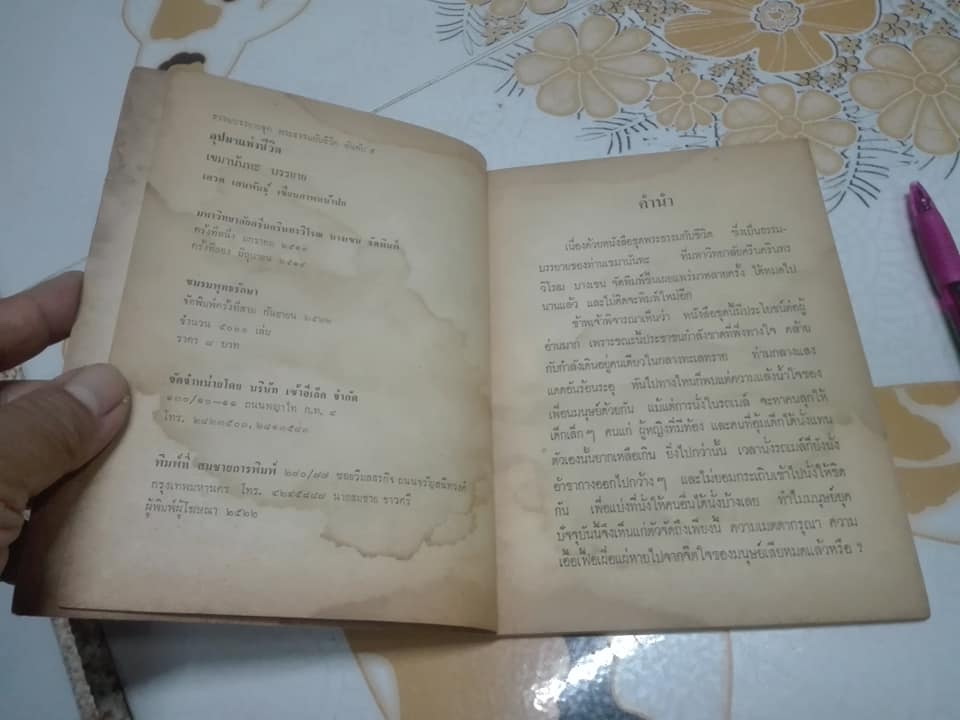 ธรรมบรรยายชุด พระธรรมกับชีวิต อันดับ ๕
อุปมาแห่งชีวิต
เขมานันทะ บรรยาย
เทวด เสนพันธุ์ เขียนภาพหน้าปก
มหาวิทยาลัยศรีนครินทรวิโรฒ บางเขน จัดพิมพ์
ครั้งที่หนึ่ง มกราคม ๒๕๑๙
ครั้งที่สอง มิถุนายน ๒๕๑๙
ชมรมพุทธรักษา
จัดพิมพ์ครั้งที่สาม กันยายน ๒๕๒๒
จำนวน ๕๐๐๐ เล่ม
ราคา ๘ บาท
จัดจำหน่ายโดย บริษัท เซ้าอีเล็ค จำกัด
๑๐๐/๑๐-๑๑ ถนนพญาไท ก.ท. ๔
โทร. ๒๘๒๓๕๐๓, ๒๘๑๐๕๔๓
พิมพ์ที่ สมชายการพิมพ์ ๒๙๐/๗๗ ซอยวิมลสรกิจ ถนนจรัญสนิทวงศ์
กรุงเทพมหานคร โทร. ๔๒๔๕๘๘๗ นายสมชาย ราวศรี
ผู้พิมพ์ผู้โฆษณา ๒๕๒๒
คำนำ
เนื่องด้วยหนังสือชุดพระธรรมกับชีวิต ซึ่งเป็นธรรม-
บรรยายของท่านเขมานันทะ ที่มหาวิทยาลัยศรีนครินทร
วิโรฒ บางเขน จัดพิมพ์ขึ้นเผยแพร่มาหลายครั้ง ได้หมดไป
นานแล้ว และไม่คิดจะพิมพ์ใหม่อีก
ข้าพเจ้าพิจารณาเห็นว่า หนังสือชุดนี้มีประโยชน์ต่อผู้
อ่านมาก เพราะขณะนี้ประชาชนกำลังขาดที่พึ่งทางใจ คล้าย
กับกำลังเดินอยู่คนเดียวในกลางทะเลทราย ท่ามกลางแสง
แดดอันร้อนระอุ หันไปทางไหนก็พบแต่ความแล้งน้ำใจของ
เพื่อนมนุษย์ด้วยกัน แม้แต่การนั่งในรถเมล์ จะหาคนลุกให้
เด็กเล็กๆ คนแก่ ผู้หญิงที่มีท้อง และคนที่อุ้มเด็กได้นั่งแทน
ตัวเองนั้นยากเหลือเกิน ยิ่งไปกว่านั้น เวลานั่งรถเมล์ก็ยังนั่ง
อ้าขากางออกไปกว้างๆ และไม่ยอมกระเถิบเข้าไปนั่งให้ชิด
กัน เพื่อแบ่งที่นั่งให้คนอื่นได้นั่งบ้างเลย ทำไมมนุษย์ยุค
ปัจจุบันนี้จึงเห็นแก่ตัวจัดถึงเพียงนี้ ความเมตตากรุณา ความ
เอื้อเฟื้อเผื่อแผ่หายไปจากจิตใจของมนุษย์เสียหมดแล้วหรือ ?